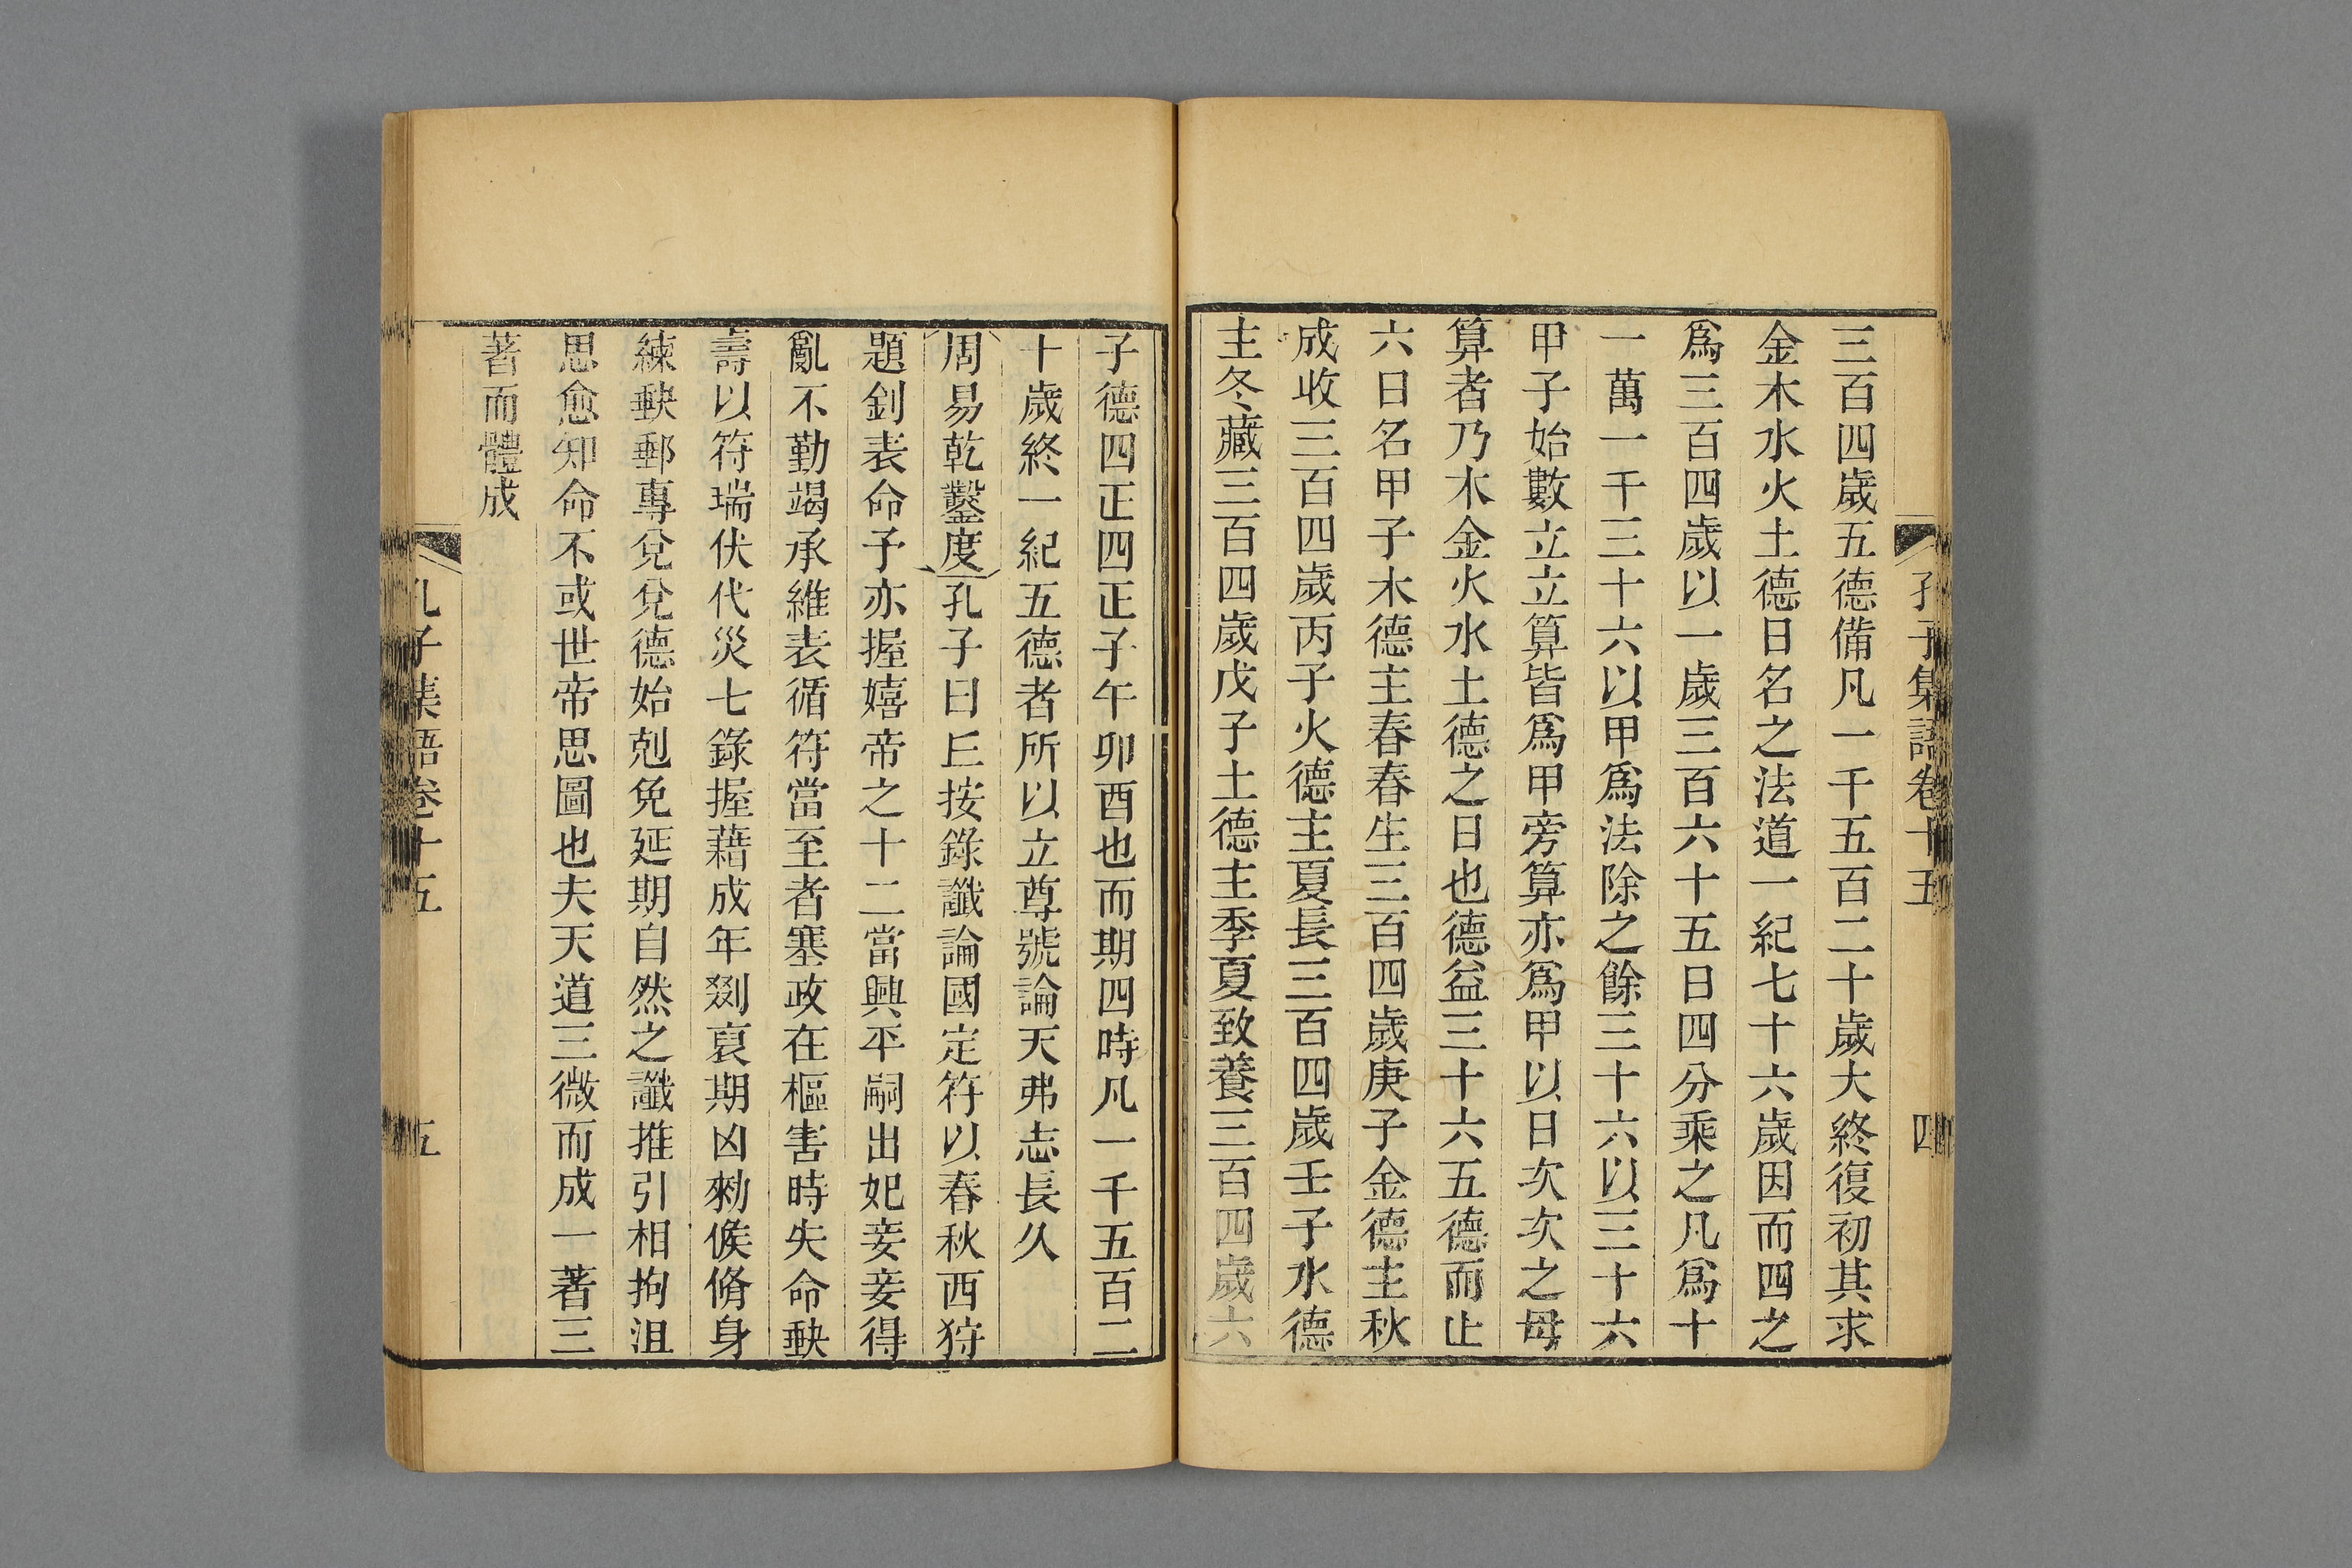 孔子集語卷十五 四
三百四歲五德備凡一千五百二十歲大終復初其求
金木水火土德日名之法道一紀七十六歲因而四之
爲三百四歲以一歲三百六十五日四分乘之凡爲十
一萬一千三十六以甲爲法除之餘三十六以三十六
甲子始數立立算皆爲甲旁算亦爲甲以日次次之母
算者乃木金火水土德之日也德益三十六五德而止
六日名甲子木德主春春生三百四歲庚子金德主秋
成收三百四歲丙子火德主夏長三百四歲壬子水德
主冬藏三百四歲戊子土德主季夏致養三百四歲六
子德四正四正子午卯酉也而期四時凡一千五百二
十歲終一紀五德者所以立尊號論天弗志長久
周易乾鑿度孔子曰丘按錄讖論國定符以春秋西狩
題釗表命予亦握嬉帝之十二當興平嗣出妃妾妾得
亂不勤竭承維表循符當至者塞政在樞害時失命缺
壽以符瑞伏代災七錄握藉成年剟裒期凶勑倏脩身
練缺郵專兌兌德始剋免延期自然之讖推引相拘沮
思愈知命不或世帝思圖也夫天道三微而成一著三
著而體成
孔子集語卷十五 五